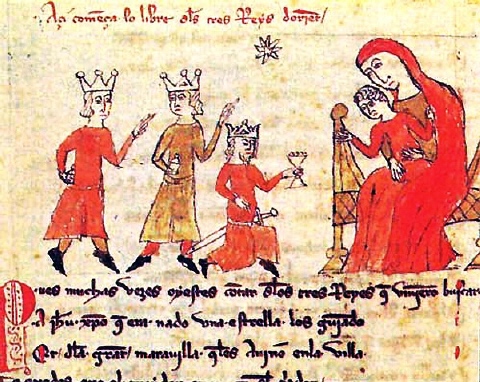 Açi comēça lo libre dls tres Reys dorient
Pues muchas vezes oyestes contar dlos tres Reyes q̃ vinyerō buscar
A ihū xp̄o q̃ era nado vna estrella los guiādo
Et dla grant marauilla q̃les auino enla villa